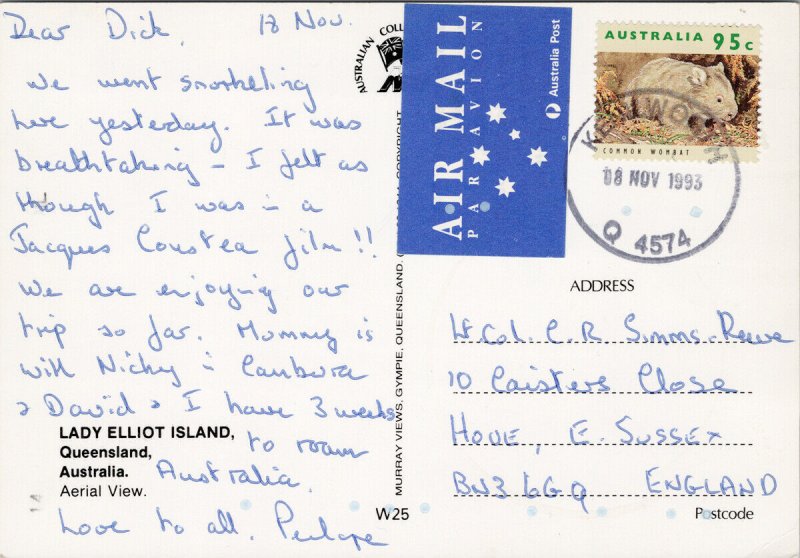 Dear Dick, 18 Nov.
We went snorkeling
here yesterday. It was
breathtaking - I felt as
though I was in a
Jacques Coustea film!!
We are enjoying our
trip so far. Mummy is
with Nicky in Canbera
& David & I have 3 weeks
to roam
Australia.
Love to all. Penlope
LADY ELLIOT ISLAND,
Queensland,
Australia.
Aerial View.
AUSTRALIAN COLL
MURRAY VIEWS, GYMPIE, QUEENSLAND.
COPYRIGHT
W25
AIR MAIL
PAR AVION
Australia Post
AUSTRALIA 95c
COMMON WOMBAT
KENILWORTH
08 NOV 1993
Q 4574
ADDRESS
Lt. Col. C.R. Simms-Reeve
10 Caisters Close
HOVE, E. SUSSEX
BN3 6GQ ENGLAND
Postcode
14